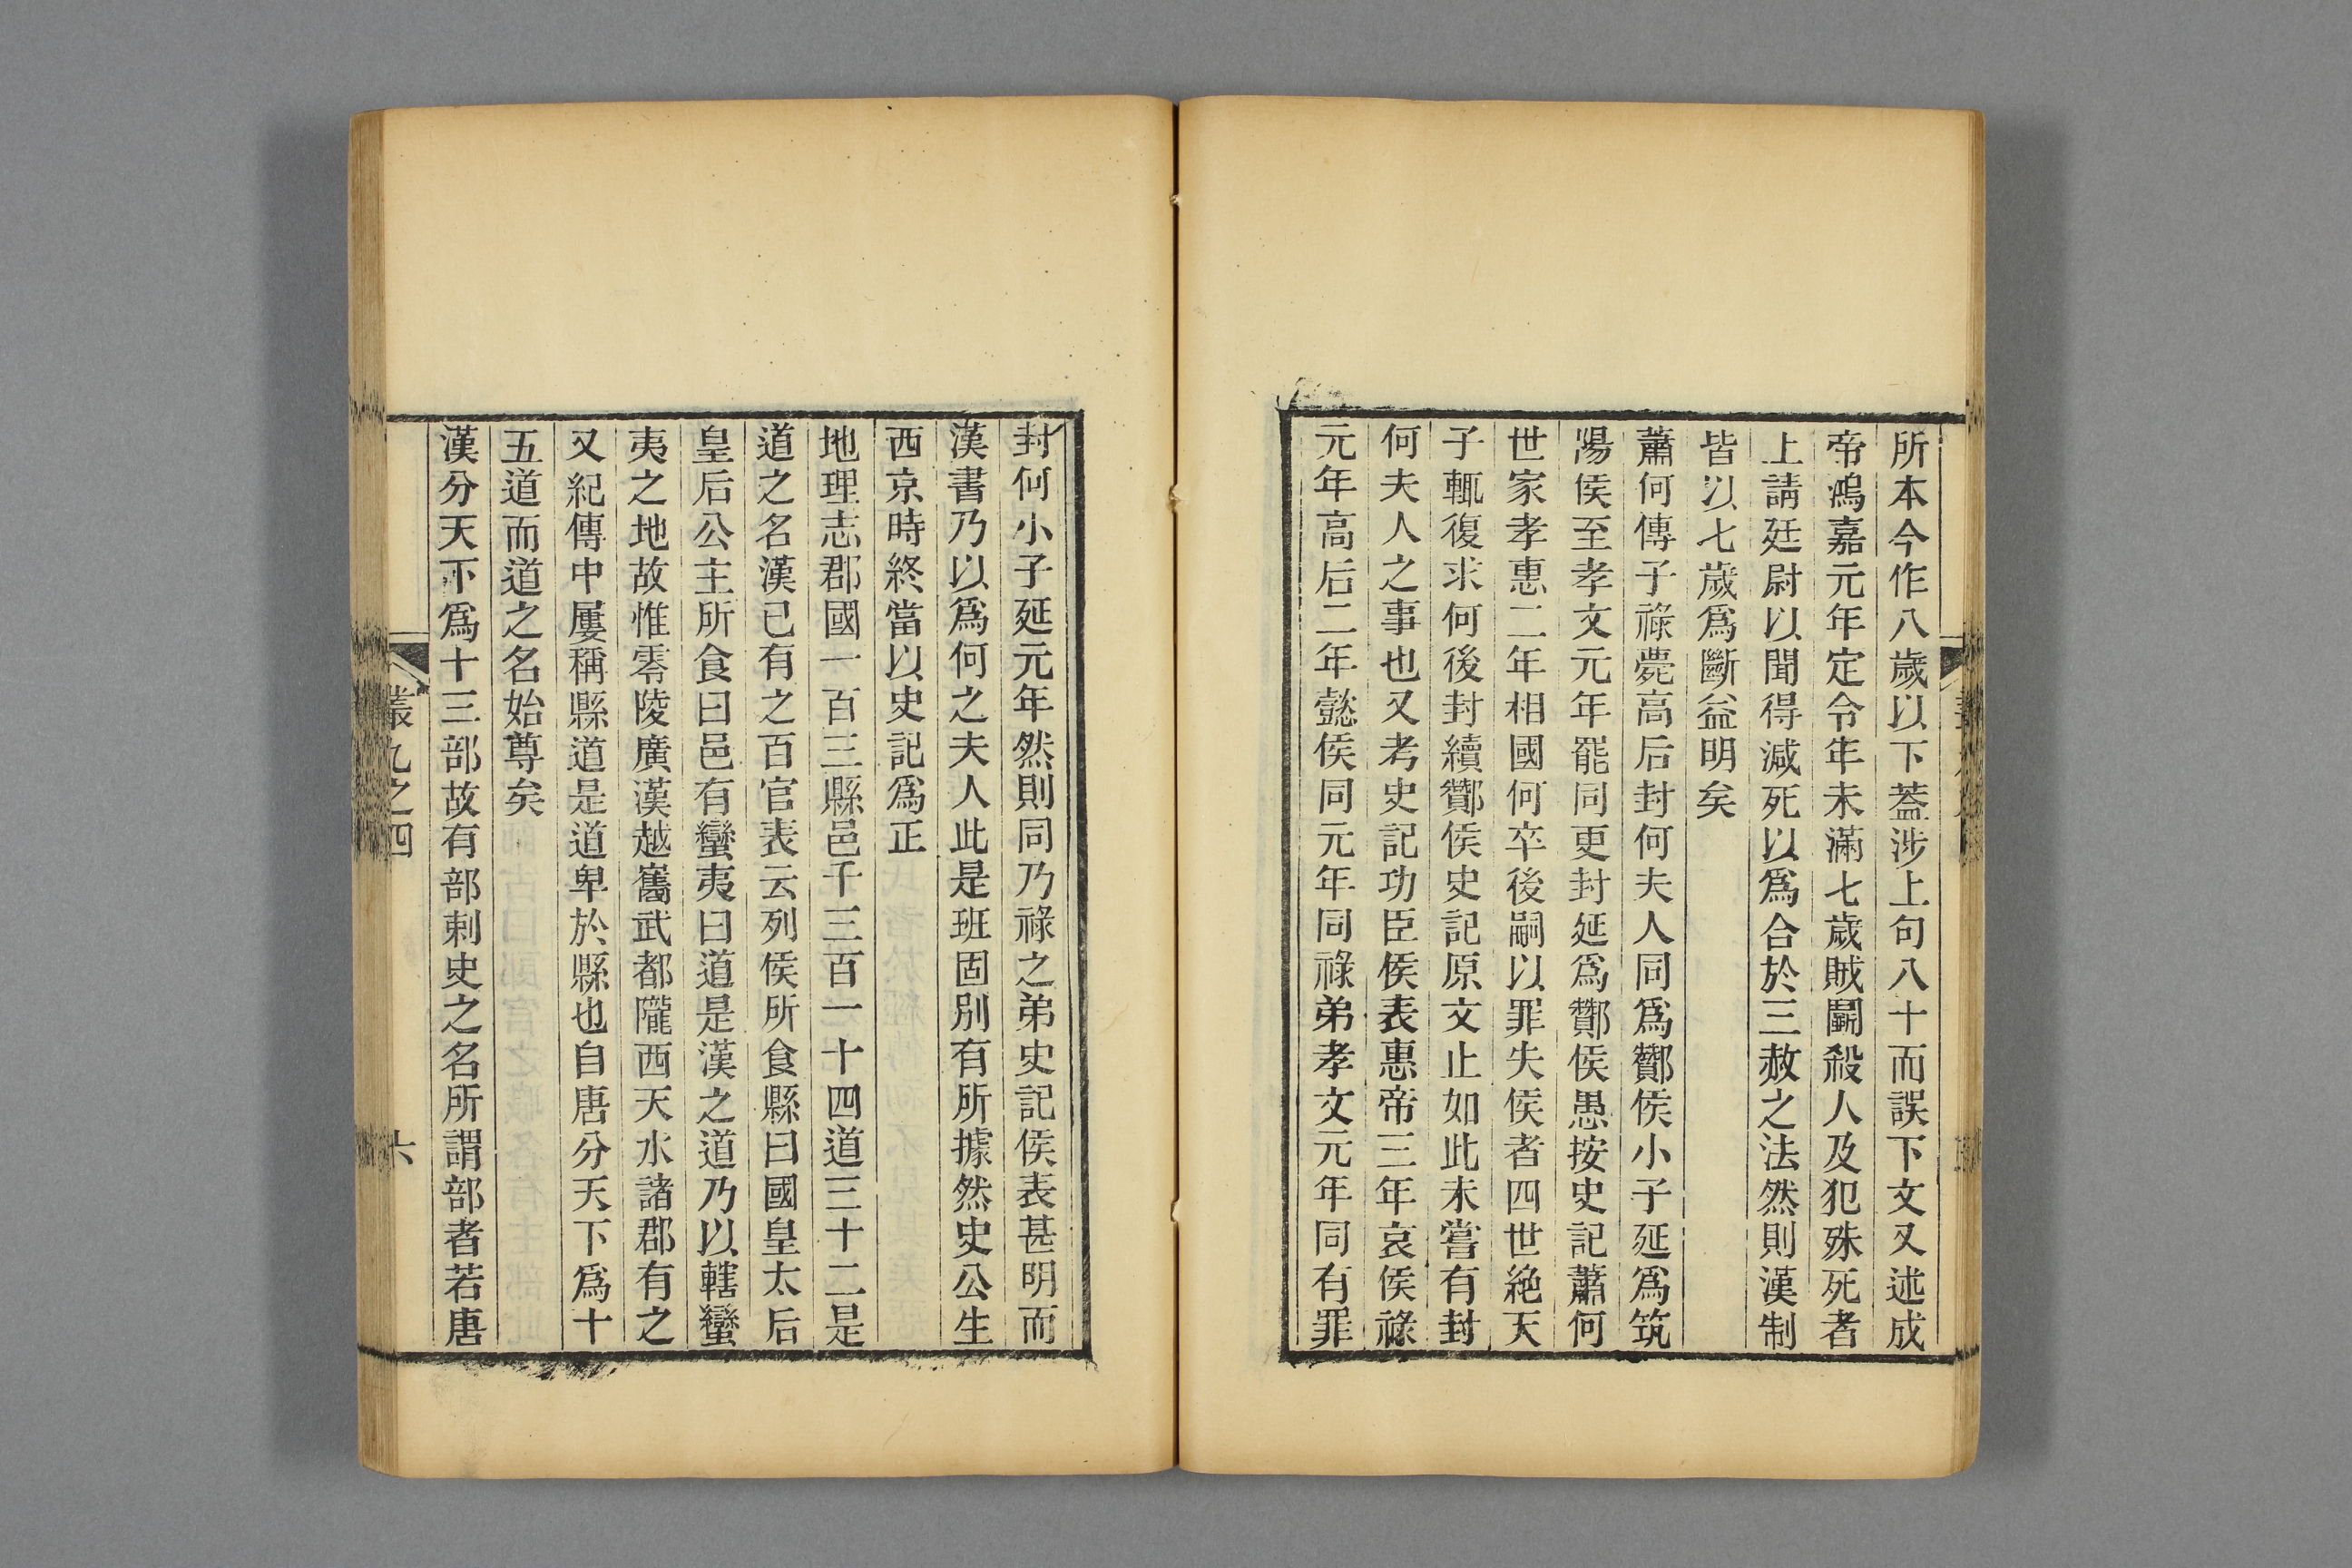 所本今作八歲以下蓋涉上句八十而誤下文又述成
帝鴻嘉元年定令年未滿七歲賊鬬殺人及犯殊死者
上請廷尉以聞得減死以爲合於三赦之法然則漢制
皆以七歲爲斷益明矣
蕭何傳子祿薨高后封何夫人同爲酇侯小子延爲筑
陽侯至孝文元年罷同更封延爲酇侯愚按史記蕭何
世家孝惠二年相國何卒後嗣以罪失侯者四世絶天
子輒復求何後封續酇侯史記原文止如此未嘗有封
何夫人之事也又考史記功臣侯表惠帝三年哀侯祿
元年高后二年懿侯同元年同祿弟孝文元年同有罪
封何小子延元年然則同乃祿之弟史記侯表甚明而
漢書乃以爲何之夫人此是班固別有所據然史公生
西京時終當以史記爲正
地理志郡國一百三縣邑千三百一十四道三十二是
道之名漢已有之百官表云列侯所食縣曰國皇太后
皇后公主所食曰邑有蠻夷曰道是漢之道乃以轄蠻
夷之地故惟零陵廣漢越巂武都隴西天水諸郡有之
又紀傳中屢稱縣道是道卑於縣也自唐分天下爲十
五道而道之名始尊矣
漢分天下爲十三部故有部刺史之名所謂部者若唐
叢九之四
六